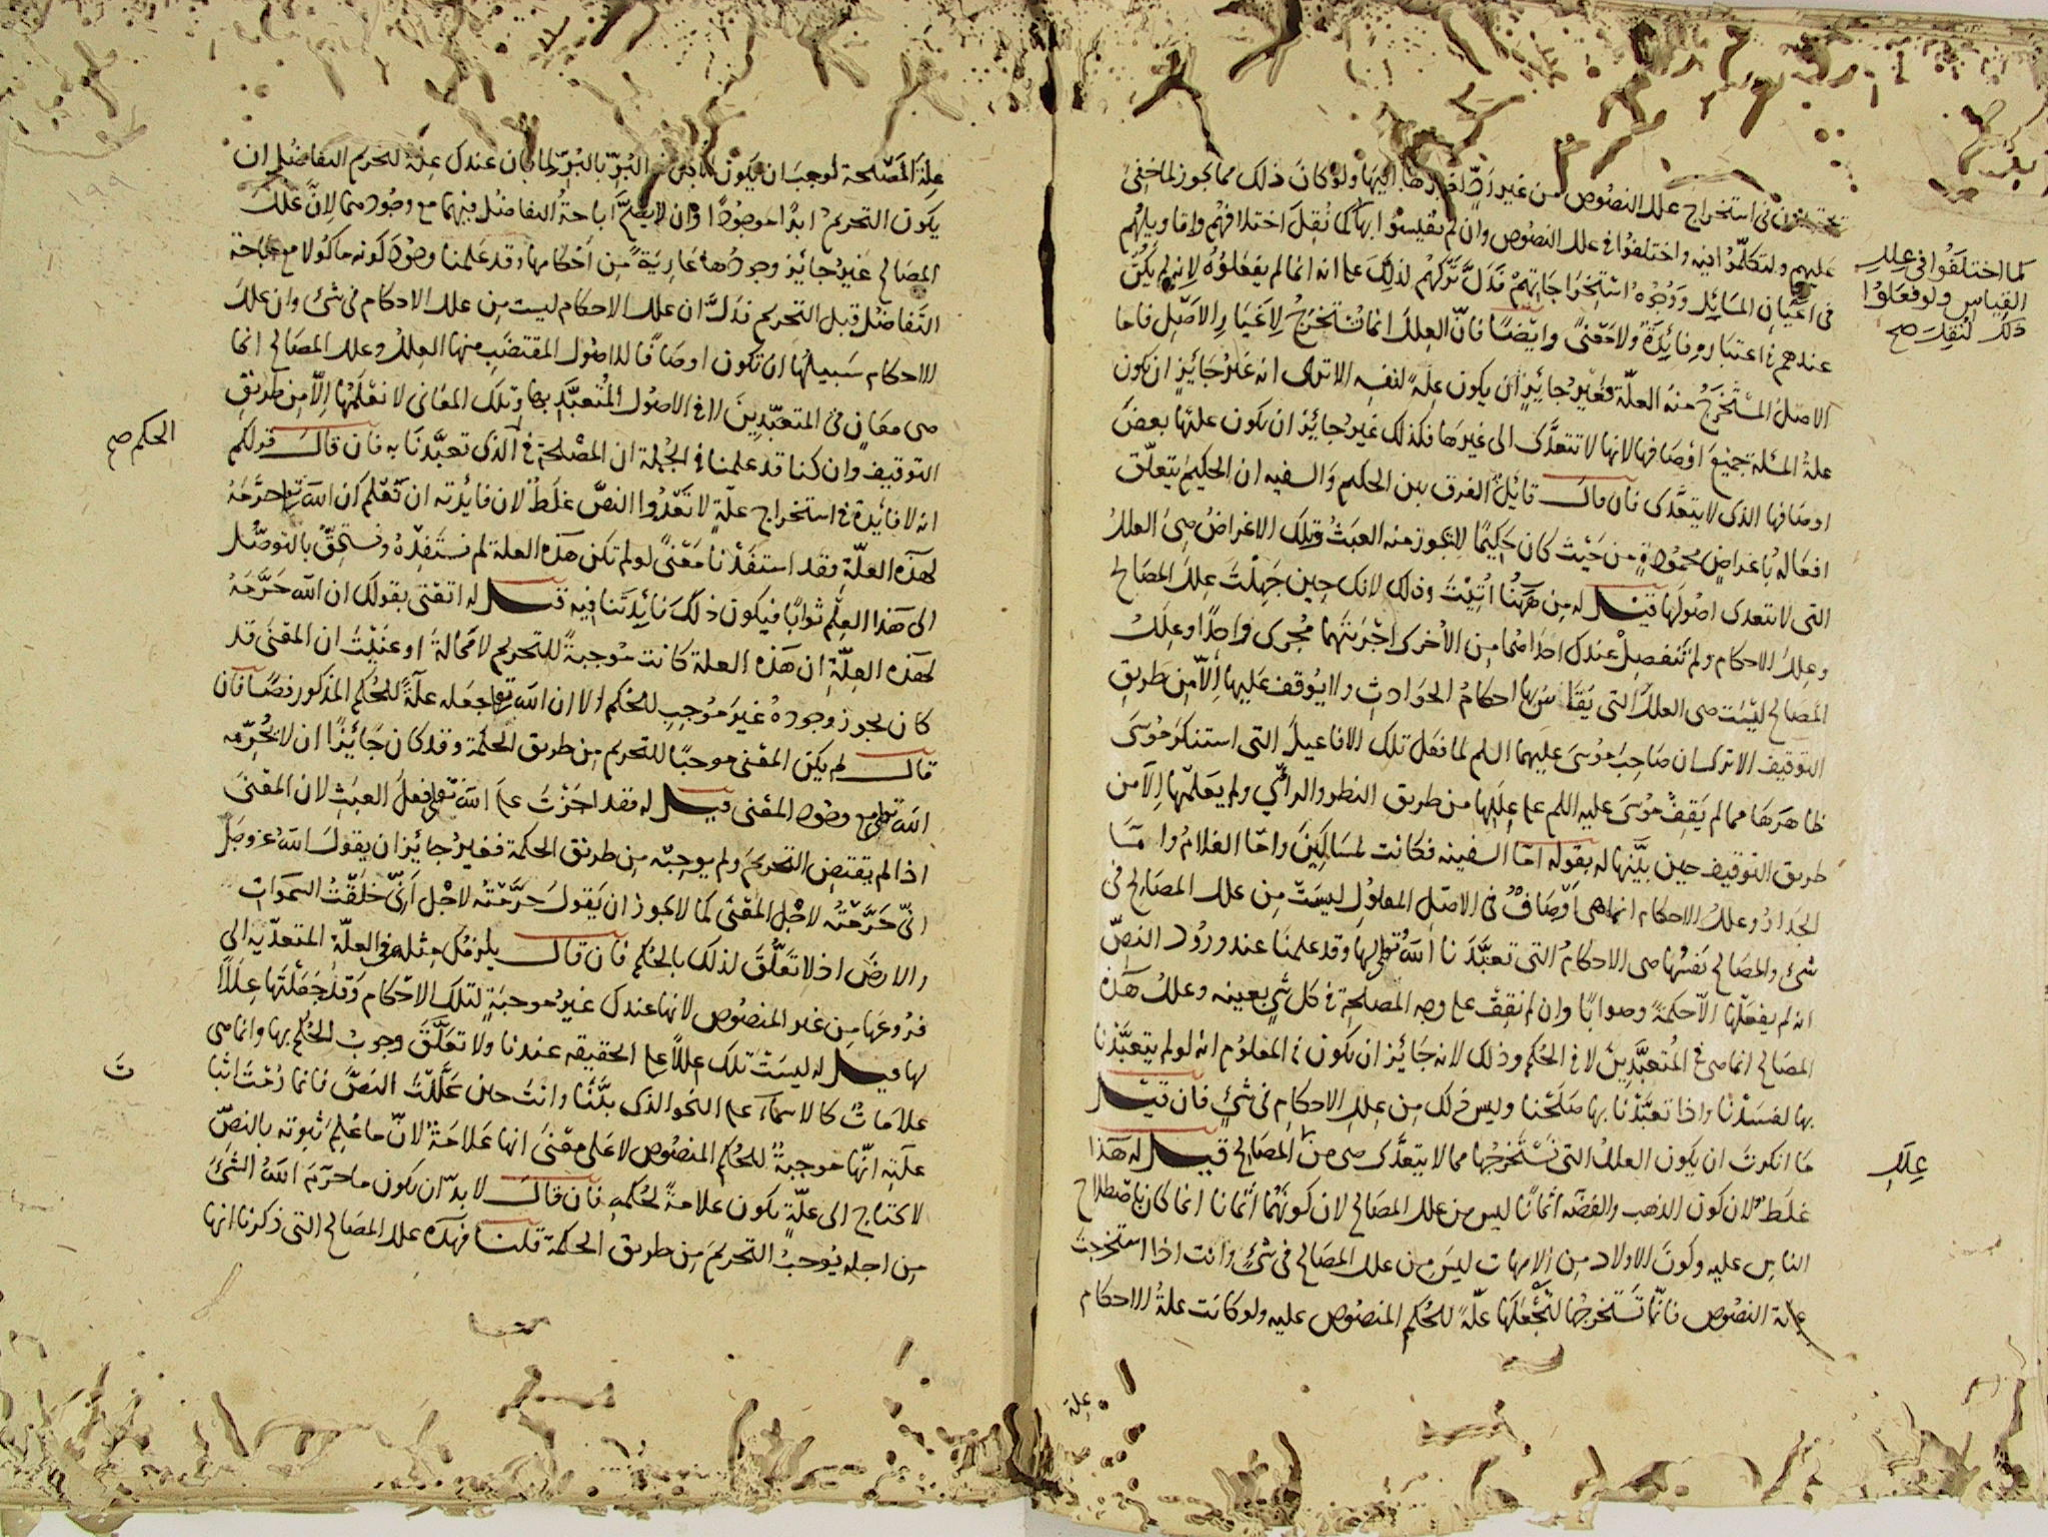 في استخراج علل النصوص من غير رد اليها ولو كان ذلك مما يجوز لما خفي
عليهم ولتكلموا فيه واختلفوا في علل النصوص وان لم يقيسوا بها كما نقل اختلافهم واقاويلهم
كما اختلفوا في علل
القياس ولو فعلوا
ذلك لنقل صح
في اعيان المسائل ووجوه استخراجاتهم فدل تركهم لذلك على انه انما لم يفعلوه لانه لم يكن
عندهم في اعتباره فائدة ولا معنى وايضا فان العلل انما تستخرج لاغيار الاصل فاما
الاصل المستخرج منه العلة فغير جائز ان يكون علة لنفسه الا ترى انه غير جائز ان يكون
علة المسئلة جميع اوصافها لانها لا تتعدى الى غيرها فكذلك غير جائز ان يكون علتها بعض
اوصافها الذي لا يتعدى فان قال قائل الفرق بين الحكيم والسفيه ان الحكيم يتعلق
افعاله باغراض محمودة من حيث كان حكيما لا يجوز منه العبث وتلك الاغراض هي العلل
التي لا تتعدى اصولها قيل له من ههنا اتيت وذلك لانك حين جهلت علل المصالح
وعلل الاحكام ولم تنفصل عندك احداهما من الاخرى اجريتهما مجرى واحدا وعلل
المصالح ليست هي العلل التي يقاس بها احكام الحوادث ولا يوقف عليها الا من طريق
التوقيف الا ترى ان صاحب موسى عليهما السلم لما فعل تلك الافاعيل التي استنكر موسى
ظاهرها مما لم يقف موسى عليه السلم على عللها من طريق النظر والرأي ولم يعلمها الا من
طريق التوقيف حين بينها له بقوله اما السفينة فكانت لمساكين واما الغلام واما
الجدار وعلل الاحكام انما هي اوصاف في الاصل المعلول ليست من علل المصالح في
شئ والمصالح نفسها هي الاحكام التي تعبدنا الله تعالى بها وقد علمنا عند ورود النص
انه لم يفعلها الا حكمة وصوابا وان لم نقف على وجه المصلحة في كل شئ بعينه وعلل هذه
المصالح انما هي في المتعبدين لا في الحكم وذلك لانه جائز ان يكون في المعلوم انه لو لم يتعبدنا
بها لفسدنا واذا تعبدنا بها صلحنا وليس ذلك من علل الاحكام في شئ فان قيل
ما انكرت ان يكون العلل التي نستخرجها مما لا يتعدى هي من المصالح قيل له هذا
علل
غلط لان كون الذهب والفضة اثمانا ليس من علل المصالح لان كونهما اثمانا انما كان باصطلاح
الناس عليه وكون الاولاد من الامهات ليس من علل المصالح في شئ وانت اذا استخرجت
علة النصوص فانما تستخرجها لتجعلها علة للحكم المنصوص عليه ولو كانت علة الاحكام
علة
علة المصلحة لوجب ان يكون البر بالبر لما بان عندك علة لتحريم التفاضل ان
يكون التحريم ابدا موجودا وان لا يصح اباحة التفاضل فيهما مع وجودهما لان علل
المصالح غير جائز وجودها عارية من احكامها وقد علمنا وجود كونه ماكولا مع اباحة
التفاضل قبل التحريم فدل ان علل الاحكام ليست من علل الاحكام في شئ وان علل
الاحكام سبيلها ان تكون اوصافا للاصول المقتضب منها العلل وعلل المصالح انما
هي معان في المتعبدين لا في الاصول المتعبد بها وتلك المعاني لا نعلمها الا من طريق
التوقيف وان كنا قد علمنا في الجملة ان المصلحة في الذي تعبدنا به فان قال قولكم
الحكم صح
انه لا فائدة في استخراج علة لا تعدوا النص غلط لان فائدته ان تعلم ان الله تعالى حرمه
لهذه العلة فقد استفدنا معنى لو لم تكن هذه العلة لم نستفده ونستحق بالتوصل
الى هذا العلم ثوابا فيكون ذلك فائدتنا فيه قيل له اتعني بقولك ان الله حرمه
لهذه العلة ان هذه العلة كانت موجبة للتحريم لا محالة او عنيت ان المعنى قد
كان يجوز وجوده غير موجب للحكم الا ان الله تعالى جعله علة للحكم المذكور نصا فان
قال لم يكن المعنى موجبا للتحريم من طريق الحكمة وقد كان جائزا ان لا يحرمه
الله تعالى مع وجود المعنى قيل له فقد اجزت على الله تعالى فعل العبث لان المعنى
اذا لم يقتض التحريم ولم يوجبه من طريق الحكمة فغير جائز ان يقول الله عز وجل
اني حرمته لاجل المعنى كما لا يجوز ان يقول حرمته لاجل اني خلقت السموات
والارض اذ لا تعلق لذلك بالحكم فان قال يلزمك مثله في العلة المتعدية الى
فروعها من غير المنصوص لانها عندك غير موجبة لتلك الاحكام وقد جعلتها عللا
لها قيل له ليست تلك عللا على الحقيقة عندنا ولا تعلق وجوب الحكم بها وانما هي
علامات كالاسماء على النحو الذي بينا وانت حين عللت النص فانما رمت اثبات
علته انها موجبة للحكم المنصوص لا على معنى انها علامة لان ما علم ثبوته بالنص
لا يحتاج الى علة يكون علامة لحكمه فان قال لا بد ان يكون ما حرم الله الشئ
من اجله يوجب التحريم من طريق الحكمة قلنا فهذه علل المصالح التي ذكرنا انها